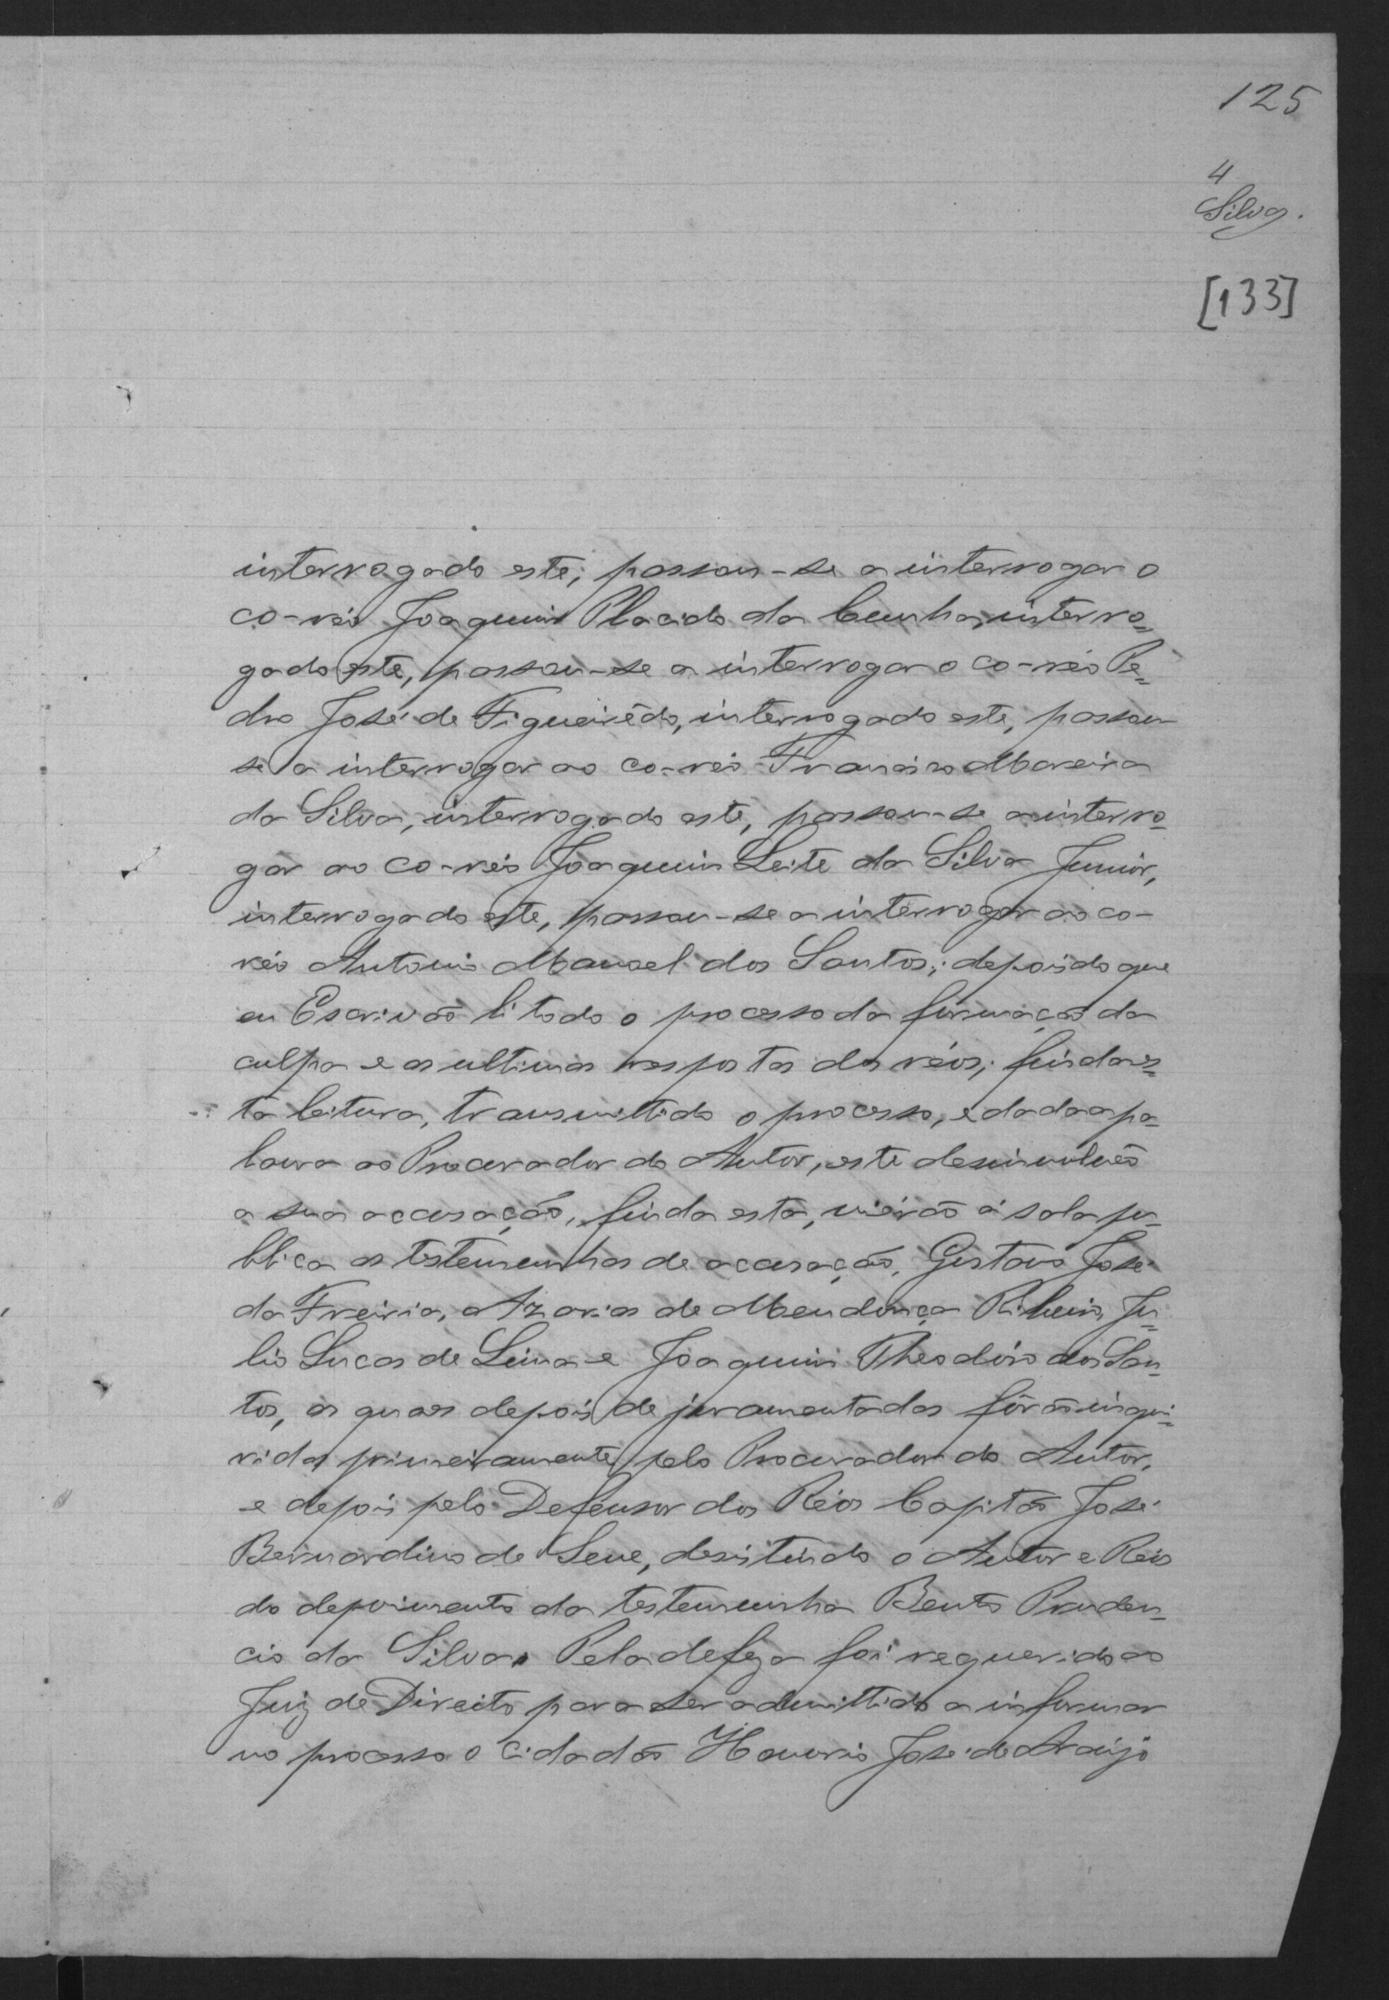 125
4
Silva.
[133]
interrogado este; passou-se a interrogar o
co-réo Joaquim Placido da Cunha, interro=
gado este, passou-se a interrogar o co-réo Pe=
dro José de Figueirêdo, interrogado este, passou
se a interrogar ao co-réo Francisco Moreira
da Silva, interrogado este, passou-se a interro=
gar ao co-réo Joaquim Leite da Silva Junior,
interrogado este, passou-se a interrogar ao co-
réo Antonio Manoel dos Santos; depois do que
eu Escrivão li todo o processo da formação da
culpa e as ultimas respostas dos réos; finda es=
ta leitura, transmittido o processo, e dada a pa=
lavra ao Procurador do Autor, este desinvolveo
a sua acusação, finda esta, vierão á sala pu=
blica as testemunhas de acusação, Gustavo José
da Freiria, Azarias de Mendonça Ribeiro, Ju=
lio Lucas de Lima e Joaquim Theodóro dos San=
tos, as quaes depois de juramentadas fôrão inqui=
ridas primeiramente pelo Procurador do Autor,
e depois pelo Defensor dos Réos Capitão José
Bernardino de Sene, desistindo o Autor e Réos
do depoimento da testemunha Bento Pruden=
cio da Silva. Pela defeza foi requerido ao
Juiz de Direito para ser admittido a informar
no processo o cidadão Honorio José de Araujo